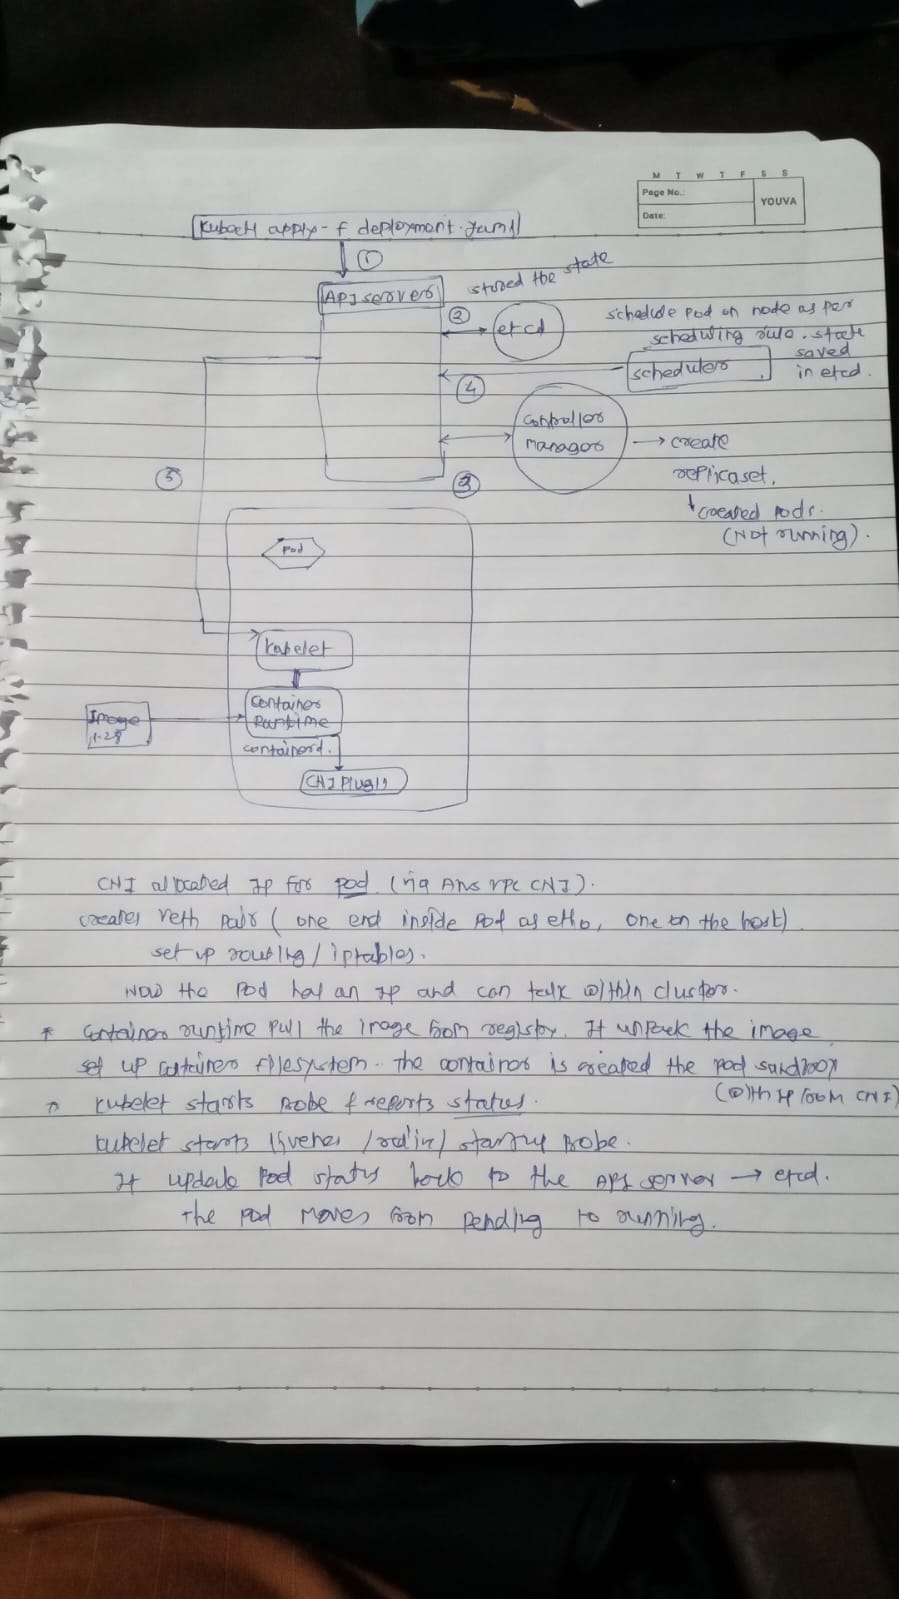 M T W T F S S
Page No.:
YOUVA
Date:
kubectl apply -f deployment.yaml
①
API server
stored the state
②
etcd
schedule pod on node as per
scheduling rule. state
saved
in etcd.
scheduler
④
controller
manager
→ create
replicaset.
↓ created pods.
(Not running).
③
⑤
pod
kubelet
container
Runtime
containerd.
CNI Plugin
Image
1.28
CNI allocated IP for pod. (via AWS VPC CNI).
creates veth pair ( one end inside pod as eth0, one on the host)
set up routing / iptables.
Now the pod has an IP and can talk within cluster.
* container runtime pull the image from registry. It unpack the image
set up container filesystem. the container is created the pod sandbox
(with IP from CNI)
kubelet starts probe & reports status.
kubelet starts livenes / / startup probe.
It update pod status back to the API server → etcd.
The pod moves from pending to running.